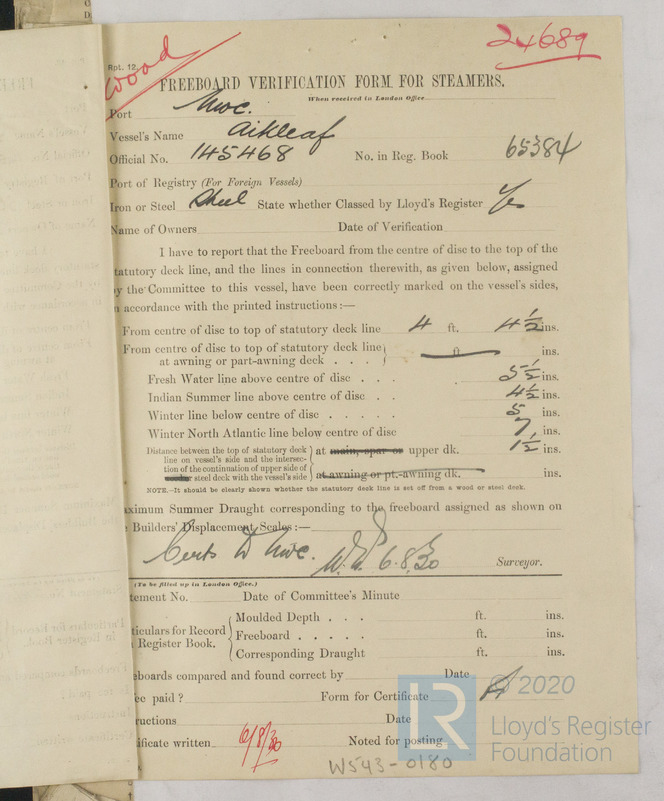 Rpt. 12.
Wood
24689
FREEBOARD VERIFICATION FORM FOR STEAMERS.
When received in London Office
Port Nwc.
Vessel's Name Aikleaf
Official No. 145468 No. in Reg. Book 65384
Port of Registry (For Foreign Vessels)
Iron or Steel Steel State whether Classed by Lloyd's Register Yes
Name of Owners Date of Verification
I have to report that the Freeboard from the centre of disc to the top of the
tatutory deck line, and the lines in connection therewith, as given below, assigned
y the Committee to this vessel, have been correctly marked on the vessel's sides,
n accordance with the printed instructions:—
From centre of disc to top of statutory deck line 4 ft. 4½ ins.
From centre of disc to top of statutory deck line
at awning or part-awning deck . . . ft. ins.
Fresh Water line above centre of disc . . . 5½ ins.
Indian Summer line above centre of disc . . 4½ ins.
Winter line below centre of disc . . . . . 5 ins.
Winter North Atlantic line below centre of disc 7 ins.
Distance between the top of statutory deck
line on vessel's side and the intersec-
tion of the continuation of upper side of
steel deck with the vessel's side
at main, spar or upper dk. 1½ ins.
at awning or pt.-awning dk. ins.
NOTE.—It should be clearly shown whether the statutory deck line is set off from a wood or steel deck.
aximum Summer Draught corresponding to the freeboard assigned as shown on
Builders' Displacement Scales:—
Certs to Nwc. 6.8.30 Surveyor.
(To be filled up in London Office.)
tement No. Date of Committee's Minute
ticulars for Record
Register Book.
Moulded Depth . . . ft. ins.
Freeboard . . . . . ft. ins.
Corresponding Draught ft. ins.
eboards compared and found correct by Date
ee paid? Form for Certificate A
tructions Date
ificate written 6/8/30 Noted for posting
W543-0180
© 2020
LR
Lloyd's Register
Foundation